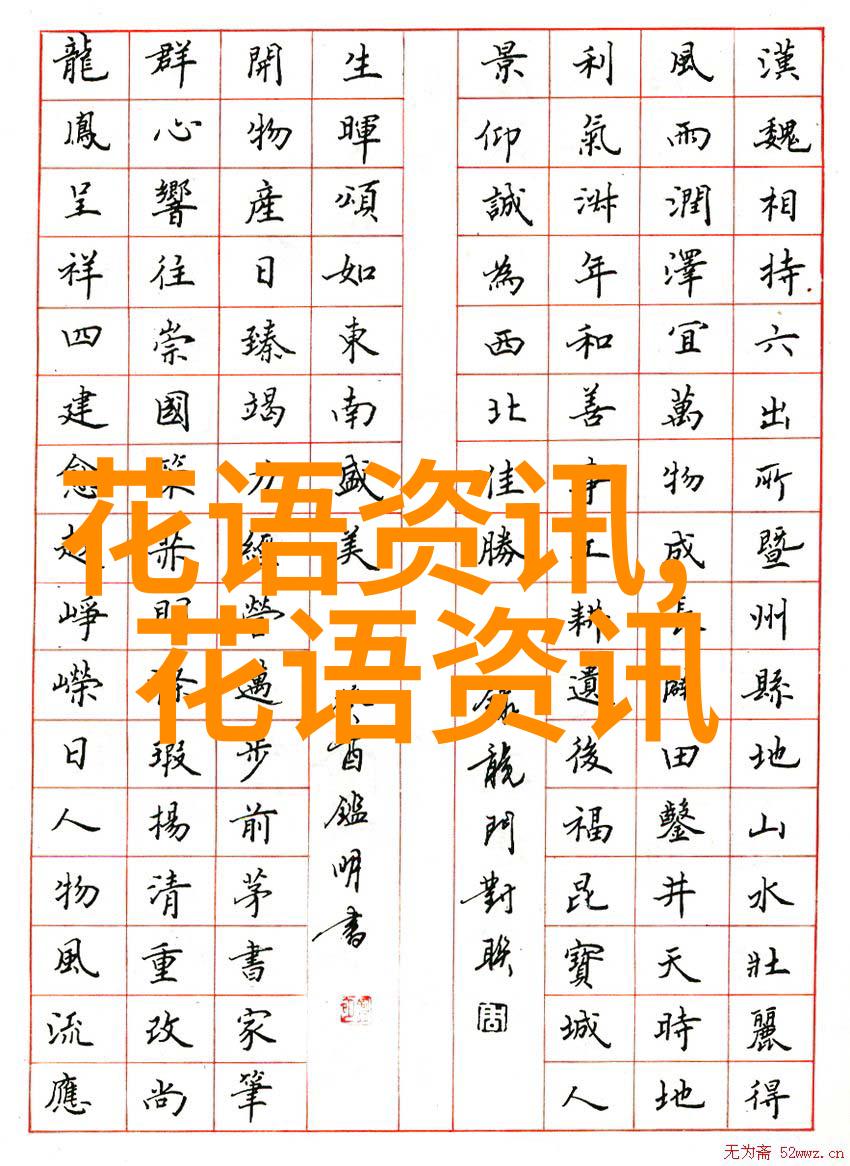 漢魏相持六出所暨州縣地山水壯麗得
風雨潤澤宜萬物成長田鑿井天時地
利氣年和善工耕遺後福昆寶城人
景仰誠為西北佳勝
錄龍門對联
生暉頌如東南盛美
癸酉鑑明書
開物產日臻竭力經營邁步前茅書家筆
群心響往崇國滌瑕揚清重改尚
龍鳳呈祥四建愈趋崢嶸日人物風流應
花语资讯,
花语资讯
无为斋 52wwz.cn